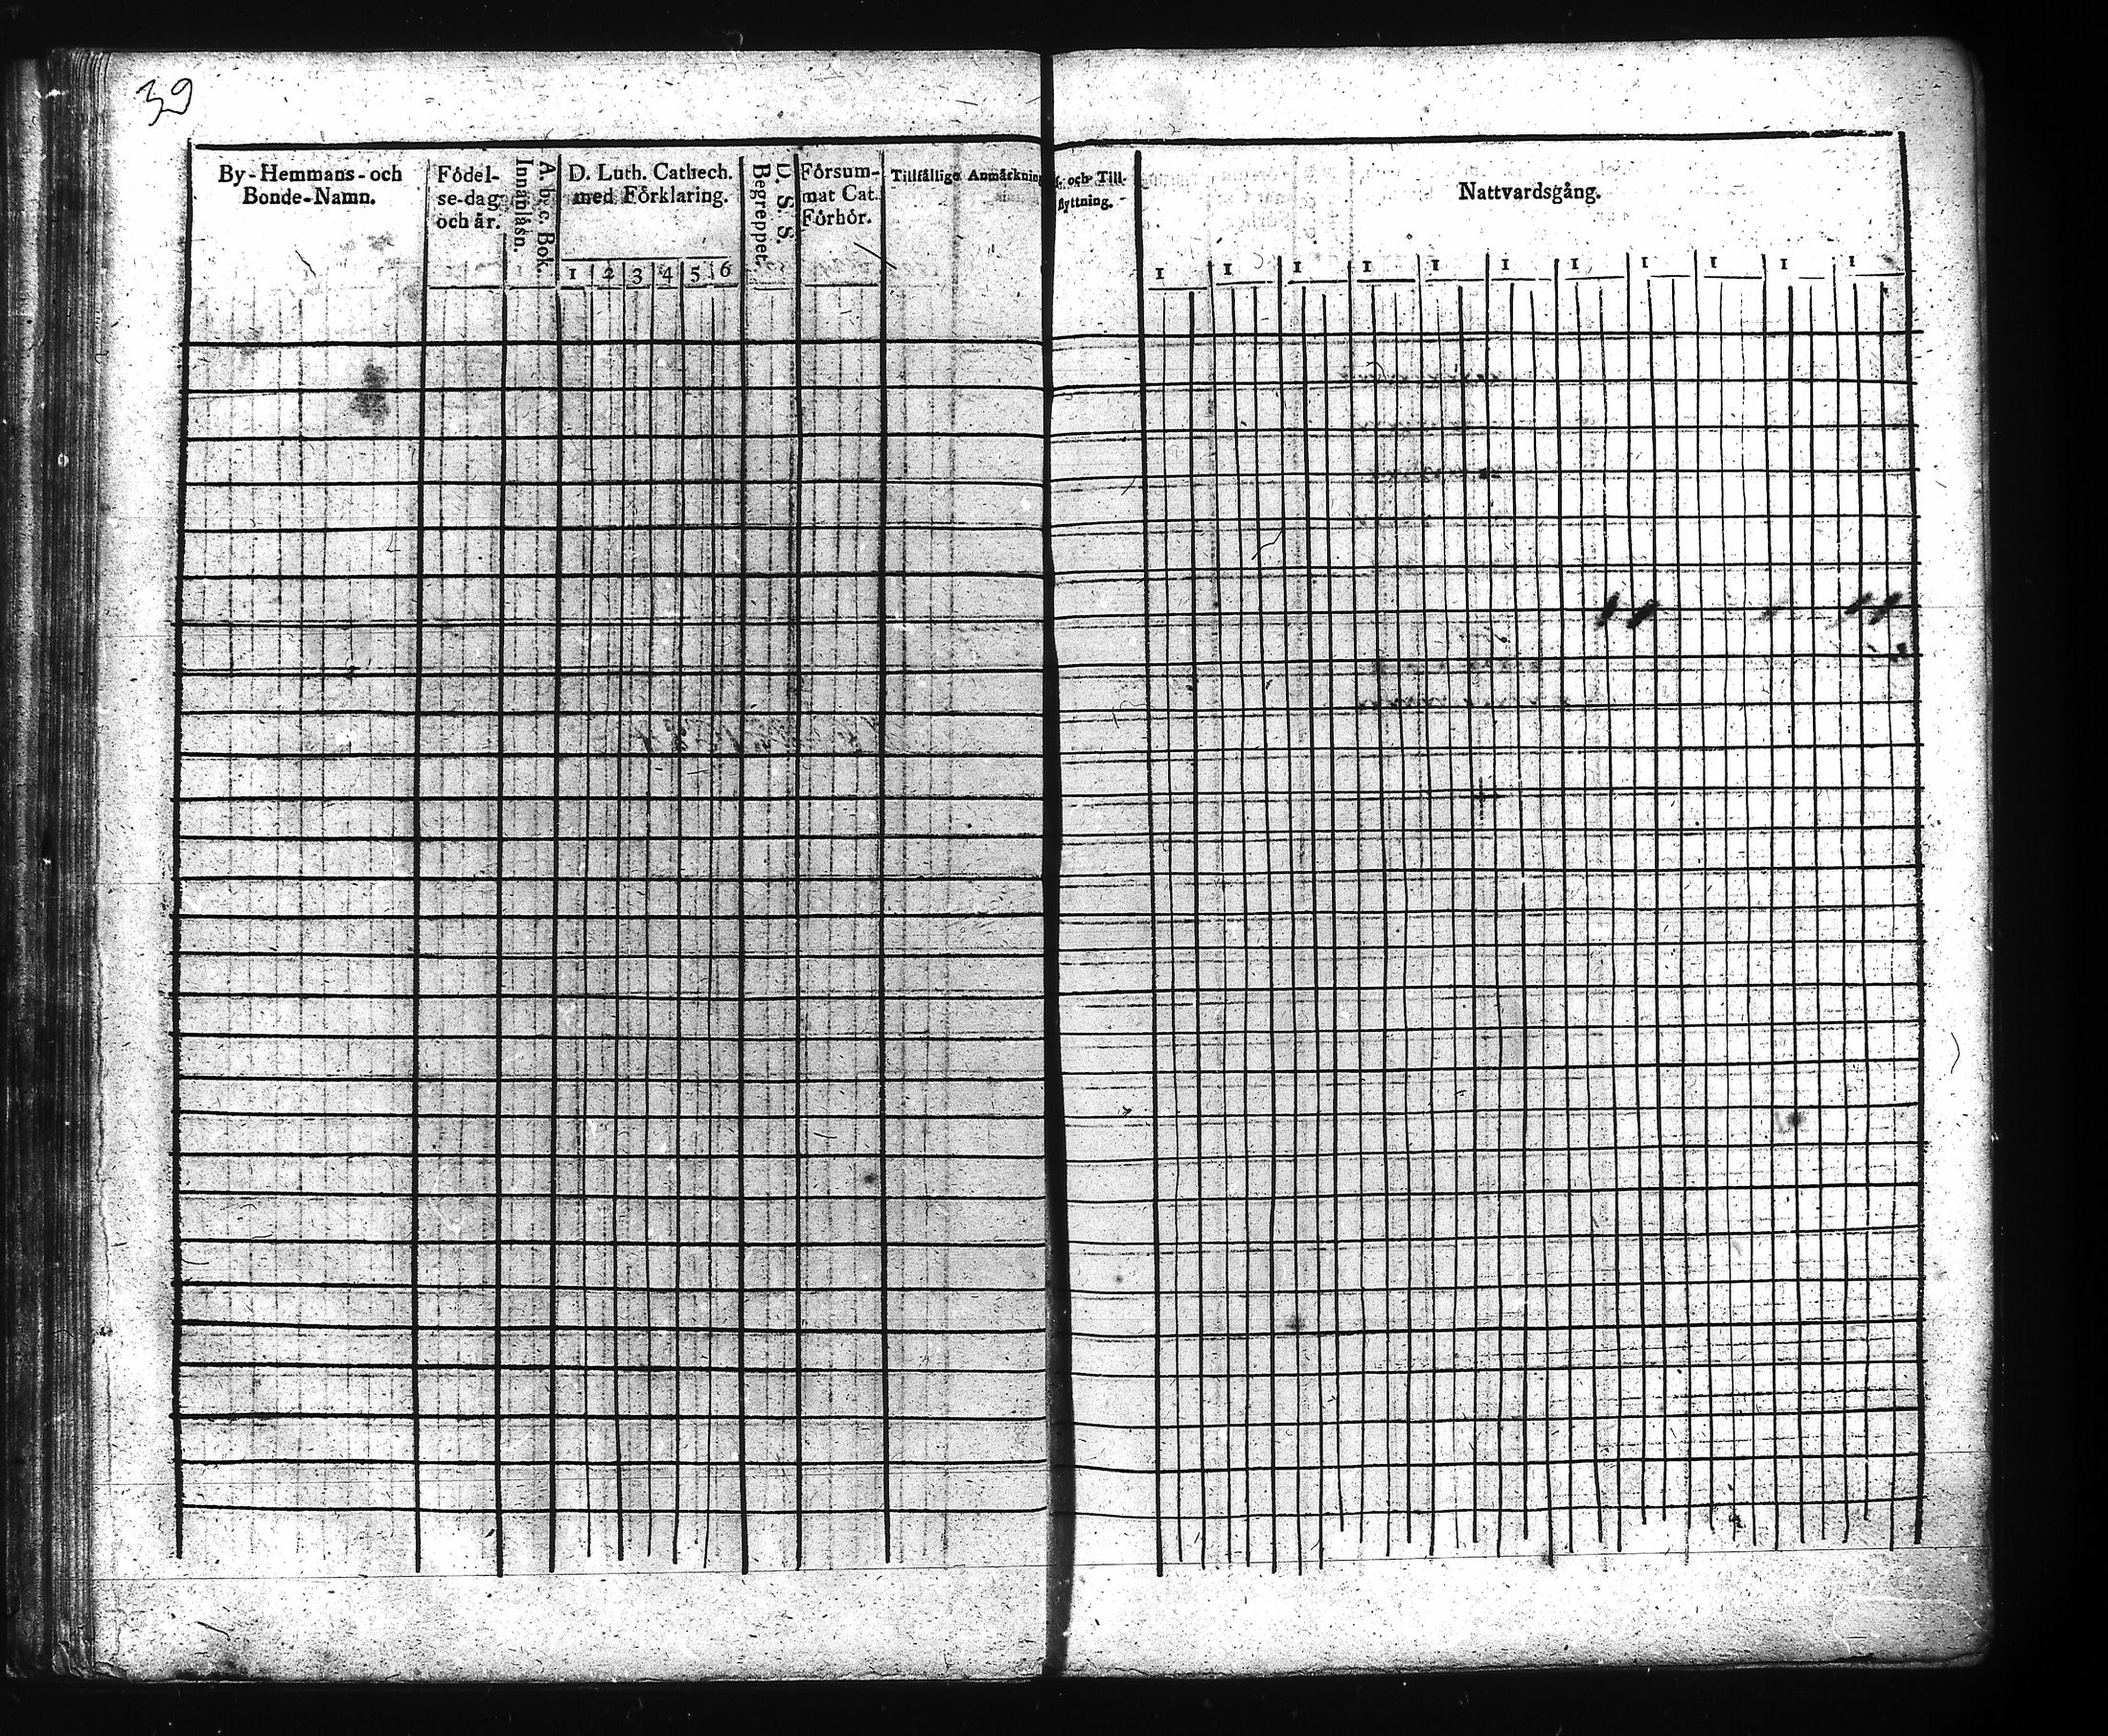 39
By-Hemmans- och
Bonde-Namn.
Födel-
se-dag
och år.
A. b. c. Bok.
Innanläsn.
D. Luth. Cathech.
med Förklaring.
1 2 3 4 5 6
D. S. S.
Begreppet.
Försum-
mat Cat.
Förhör.
Tillfällige Anmärkning
och Till-
flyttning.
Nattvardsgång.
1 1 1 1 1 1 1 1 1 1 1